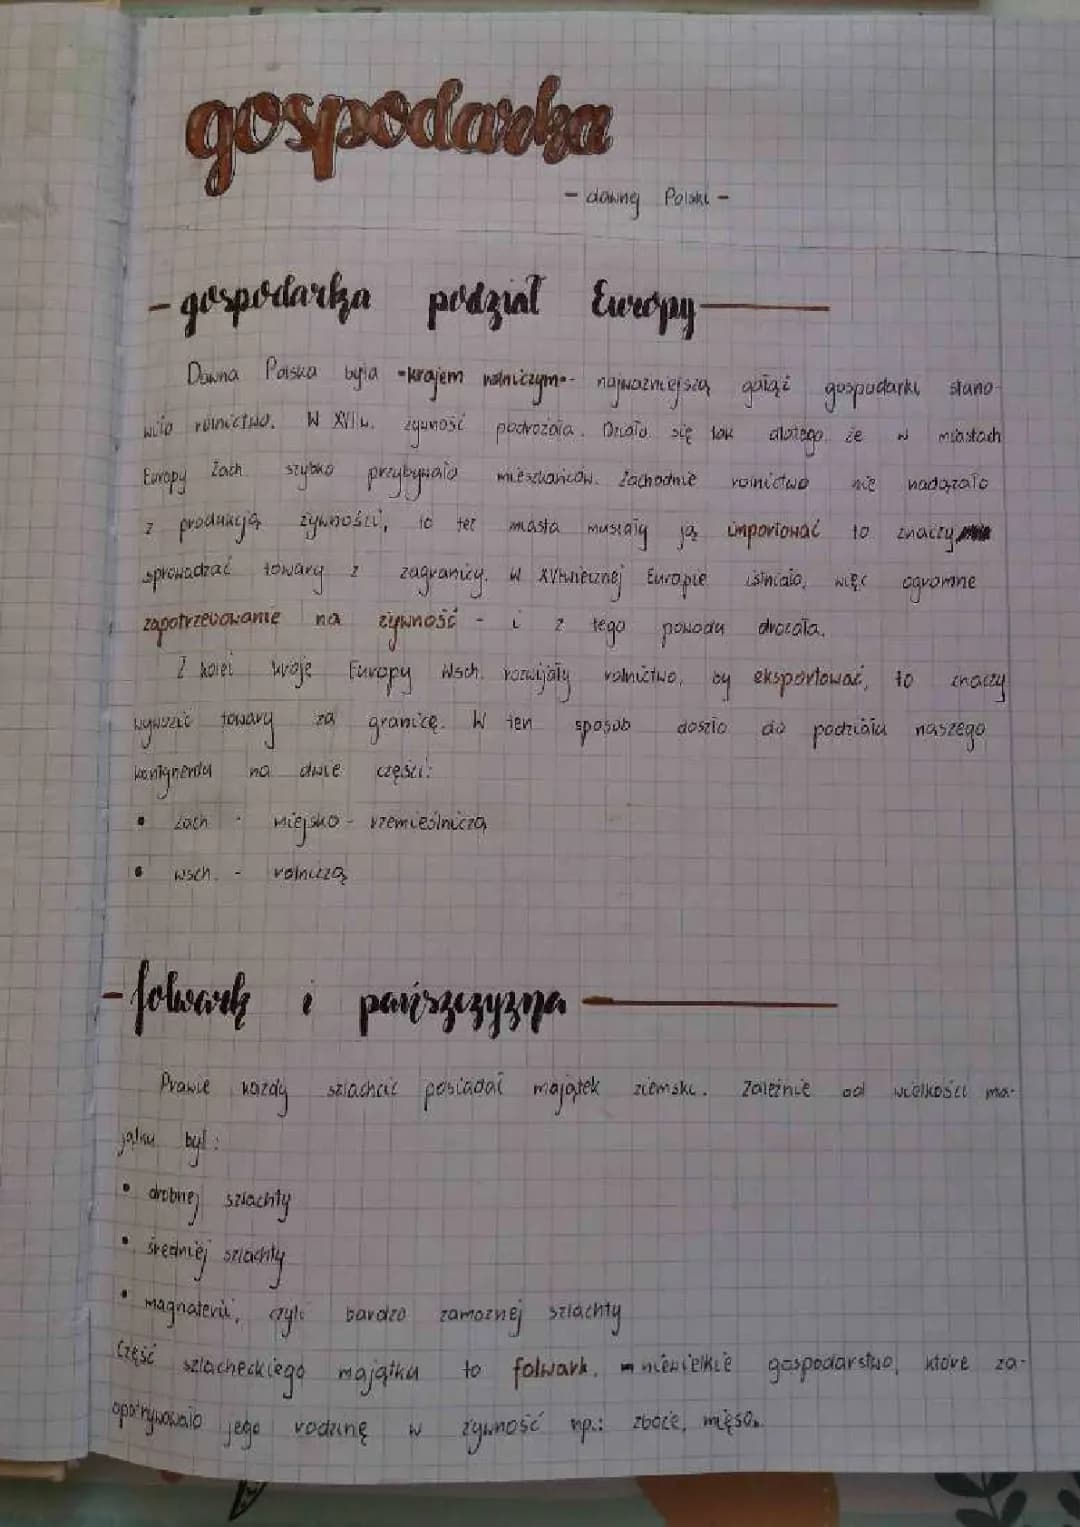 gospodarka
- dawnej Polski -
- gospodarka podział Europy
Dawna Polska była -krajem rolniczym- najważniejszą gałąź gospodarki stano-
wiło rolnictwo. W XVI w. żywność podrożała. Działo się tak dlatego, że w miastach
Europy Zach. szybko przybywało mieszkańców. Zachodnie rolnictwo nie nadążało
z produkcją żywności, to też miasta musiały ją importować to znaczy
sprowadzać towary z zagranicy. W XVIwiecznej Europie istniało, więc ogromne
zapotrzebowanie na żywność - i z tego powodu drożała.
Z kolei kraje Europy Wsch. rozwijały rolnictwo, by eksportować, to znaczy
wywozić towary za granicę. W ten sposób doszło do podziału naszego
kontynentu na dwie części:
• zach - miejsko - rzemieślniczą
• wsch. - rolniczą
- folwark i pańszczyzna
Prawie każdy szlachcic posiadał majątek ziemski. Zależnie od wielkości ma-
jątku był:
• drobnej szlachty
• średniej szlachty
• magnaterii, czyli bardzo zamożnej szlachty
Część szlacheckiego majątku to folwark, niewielkie gospodarstwo, które za-
opatrywało jego rodzinę w żywność np.: zboże, mięso.